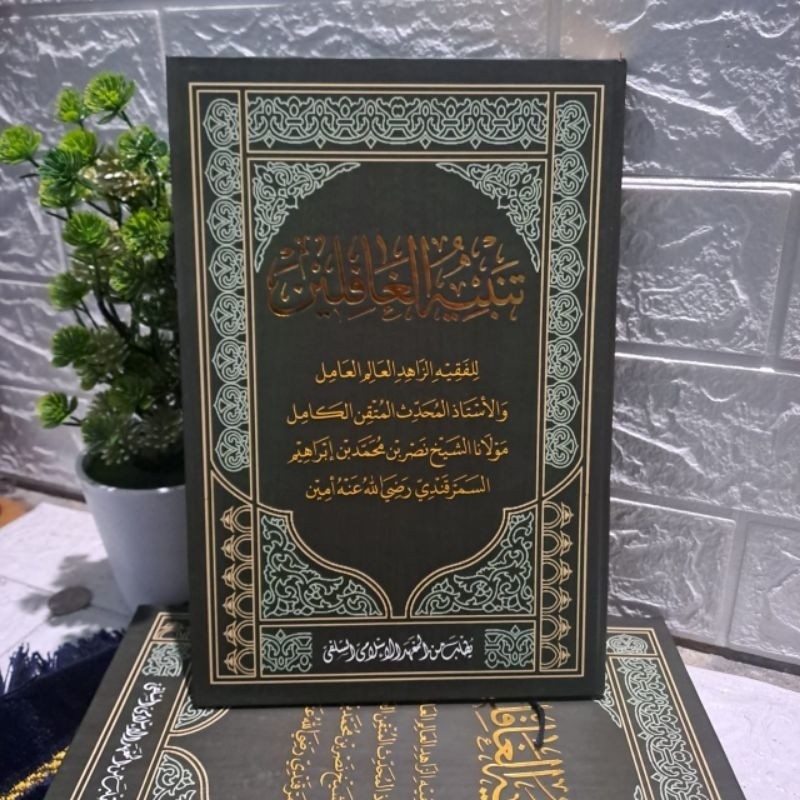 تَنْبِيْهُ الغَافِلِيْنَ
لِلفَقِيْهِ الزَاهِدِ العَالِمِ العَامِل
وَالأسْتَاذ المُحَدِّث المُتْقِن الكَامِل
مَوْلَانَا الشَيْخ نَصْر بْن مُحَمَّد بْن إبْرَاهِيْم
السَمَرْقَنْدِيّ رَضِيَ اللهُ عَنْهُ أمِيْن
يطلب من المعهد الاسلامى السلفى